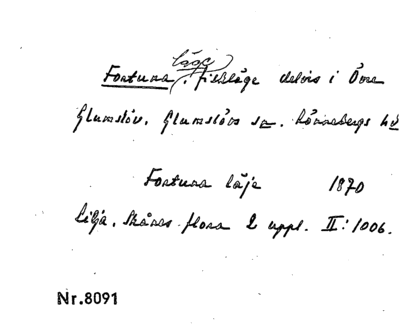 läge
Fortuna, fiskläge delvis i Övra
Glumslöv, Glumslövs sn. Rönnebergs hd
Fortuna läje 1870
Lilja, Skånes flora 2 uppl. II: 1006.
Nr.8091